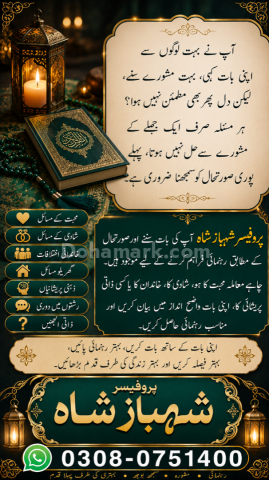 آپ نے بہت لوگوں سے
اپنی بات کہی، بہت مشورے سنے،
لیکن دل پھر بھی مطمئن نہیں ہوا؟
ہر مسئلہ صرف ایک جملے کے
مشورے سے حل نہیں ہوتا، پہلے
پوری صورتحال کو سمجھنا ضروری ہے۔
محبت کے مسائل
شادی کے مسائل
خاندانی اختلافات
گھریلو مسائل
ذہنی پریشانیاں
رشتوں میں دوری
ذاتی الجھنیں
پروفیسر شہباز شاہ آپ کی بات سننے اور صورتحال
کے مطابق رہنمائی فراہم کرنے کے لیے موجود ہیں۔
چاہے معاملہ محبت کا ہو، شادی کا، خاندان کا یا کسی ذاتی
پریشانی کا، اپنی بات واضح انداز میں بیان کریں اور
مناسب رہنمائی حاصل کریں۔
Dohamark.com
اپنی بات کے ساتھ بات کریں، بہتر رہنمائی پائیں،
بہتر فیصلہ کریں اور بہتر زندگی کی طرف قدم بڑھائیں۔
پروفیسر
شہباز شاہ
0308-0751400
رہنمائی . مشورہ . سمجھ بوجھ . بہتری کی طرف پہلا قدم